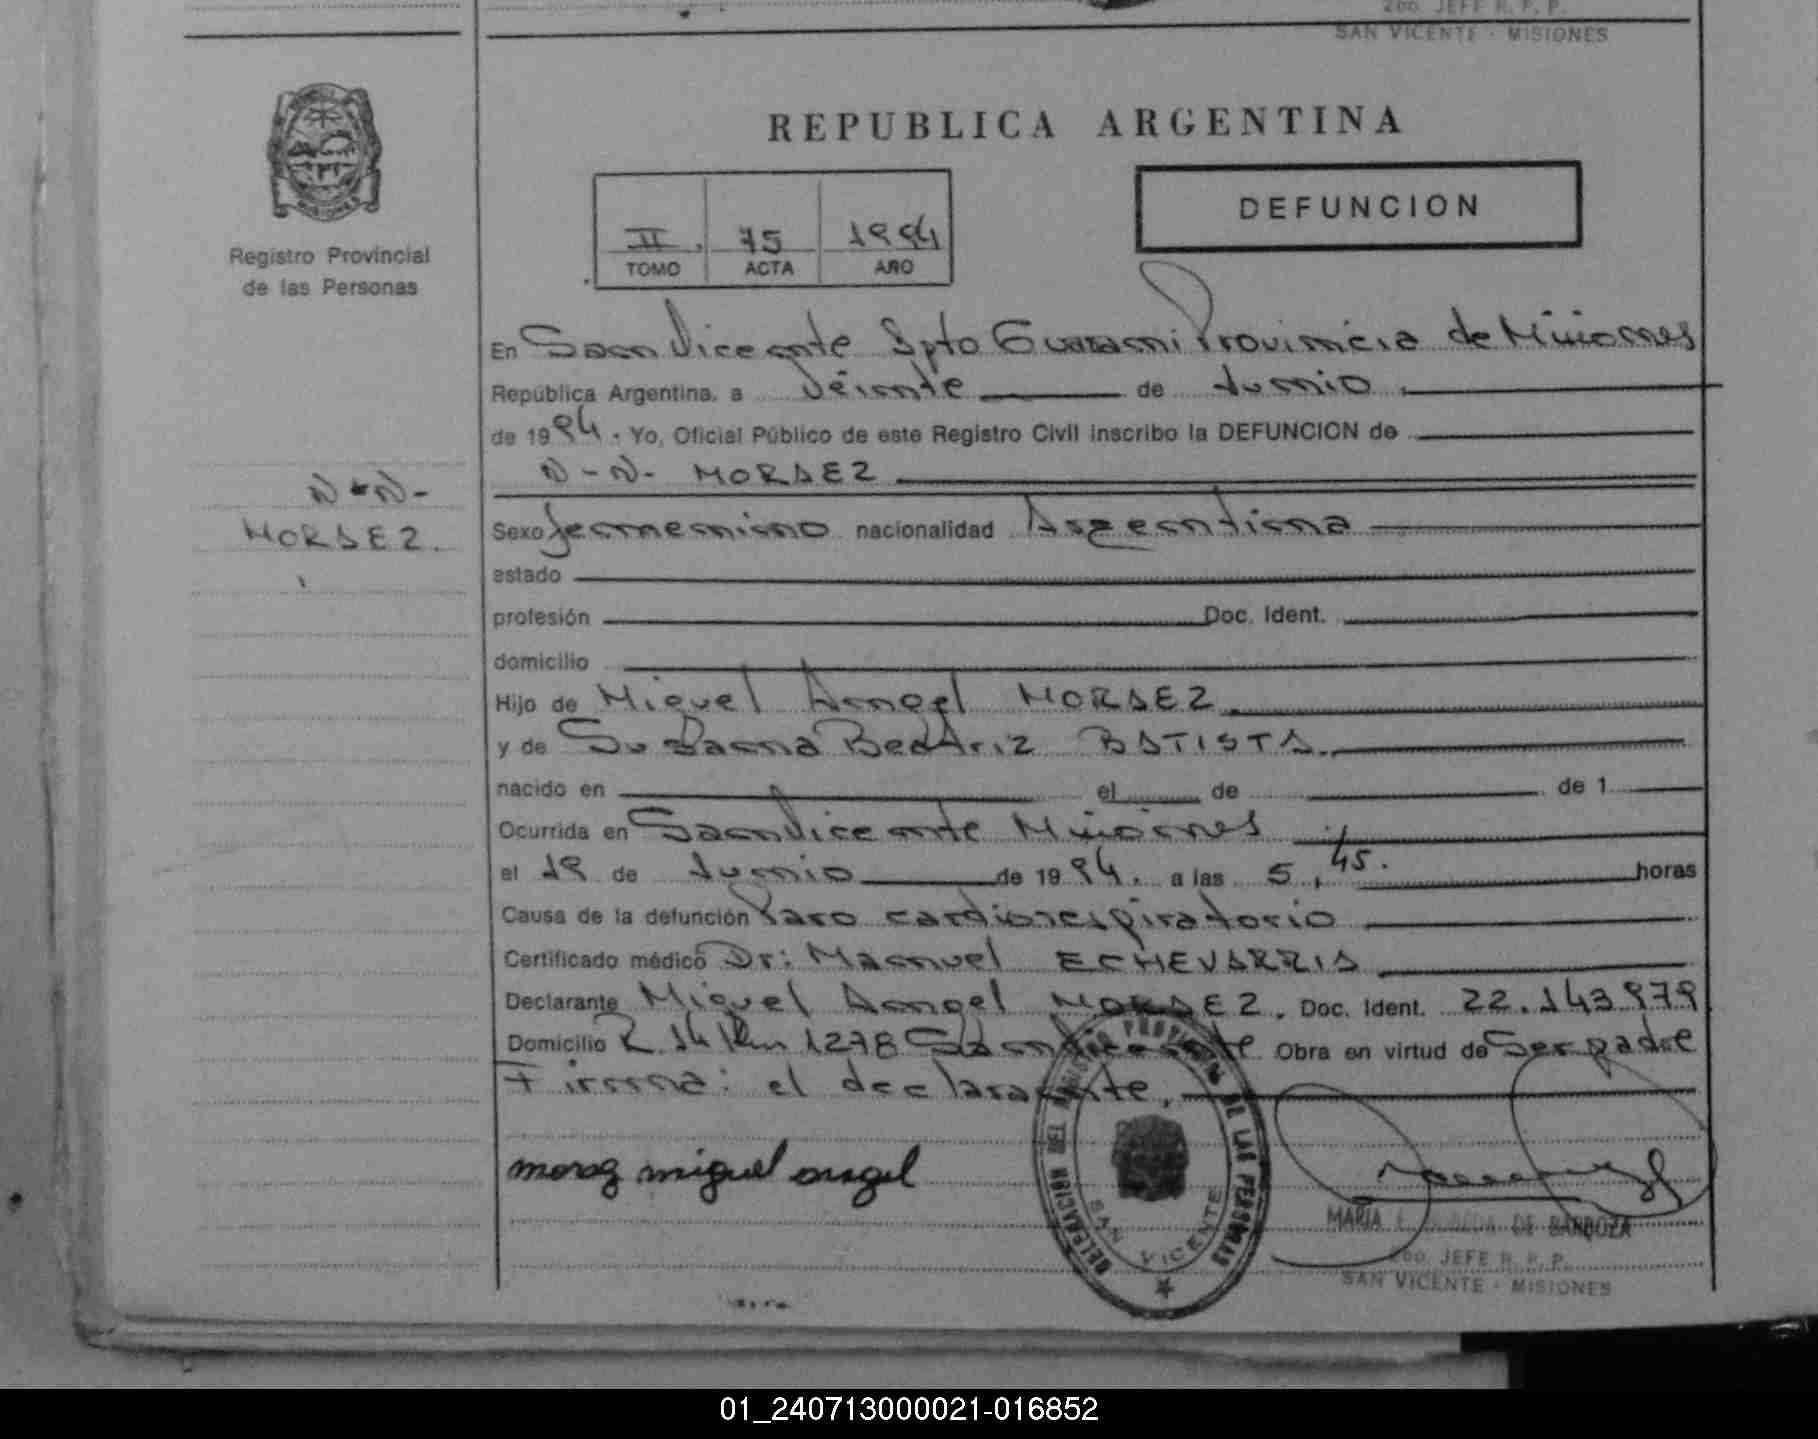 2do. JEFE R. P. P.
SAN VICENTE - MISIONES
MISIONES
Registro Provincial
de las Personas
REPUBLICA ARGENTINA
II. 75 1994
TOMO ACTA AÑO
DEFUNCION
En San Vicente Dpto Guarani Provincia de Misiones
República Argentina, a Veinte de Junio
de 1994. Yo, Oficial Público de este Registro Civil inscribo la DEFUNCION de
N-N- MORAEZ
N-N-
MORAEZ.
Sexo femenino nacionalidad Argentina
estado
profesión Doc. Ident.
domicilio
Hijo de Miguel Angel MORAEZ.
y de Susana Beatriz BATISTA.
nacido en el de de 1
Ocurrida en San Vicente Misiones
el 19 de Junio de 1994. a las 5,45. horas
Causa de la defunción Paro cardiorespiratorio
Certificado médico Dr: Manuel ECHEVARRIA
Declarante Miguel Angel MORAEZ. Doc. Ident. 22.143.979
Domicilio R. 14 Km 1278 San Vicente Obra en virtud de Ser padre
Firma: el declarante.
moraz miguel angel
DELEGACION DEL REGISTRO PROVINCIAL DE LAS PERSONAS
SAN VICENTE
MARIA DE BARBOZA
2do. JEFE R. P. P.
SAN VICENTE - MISIONES
01_240713000021-016852